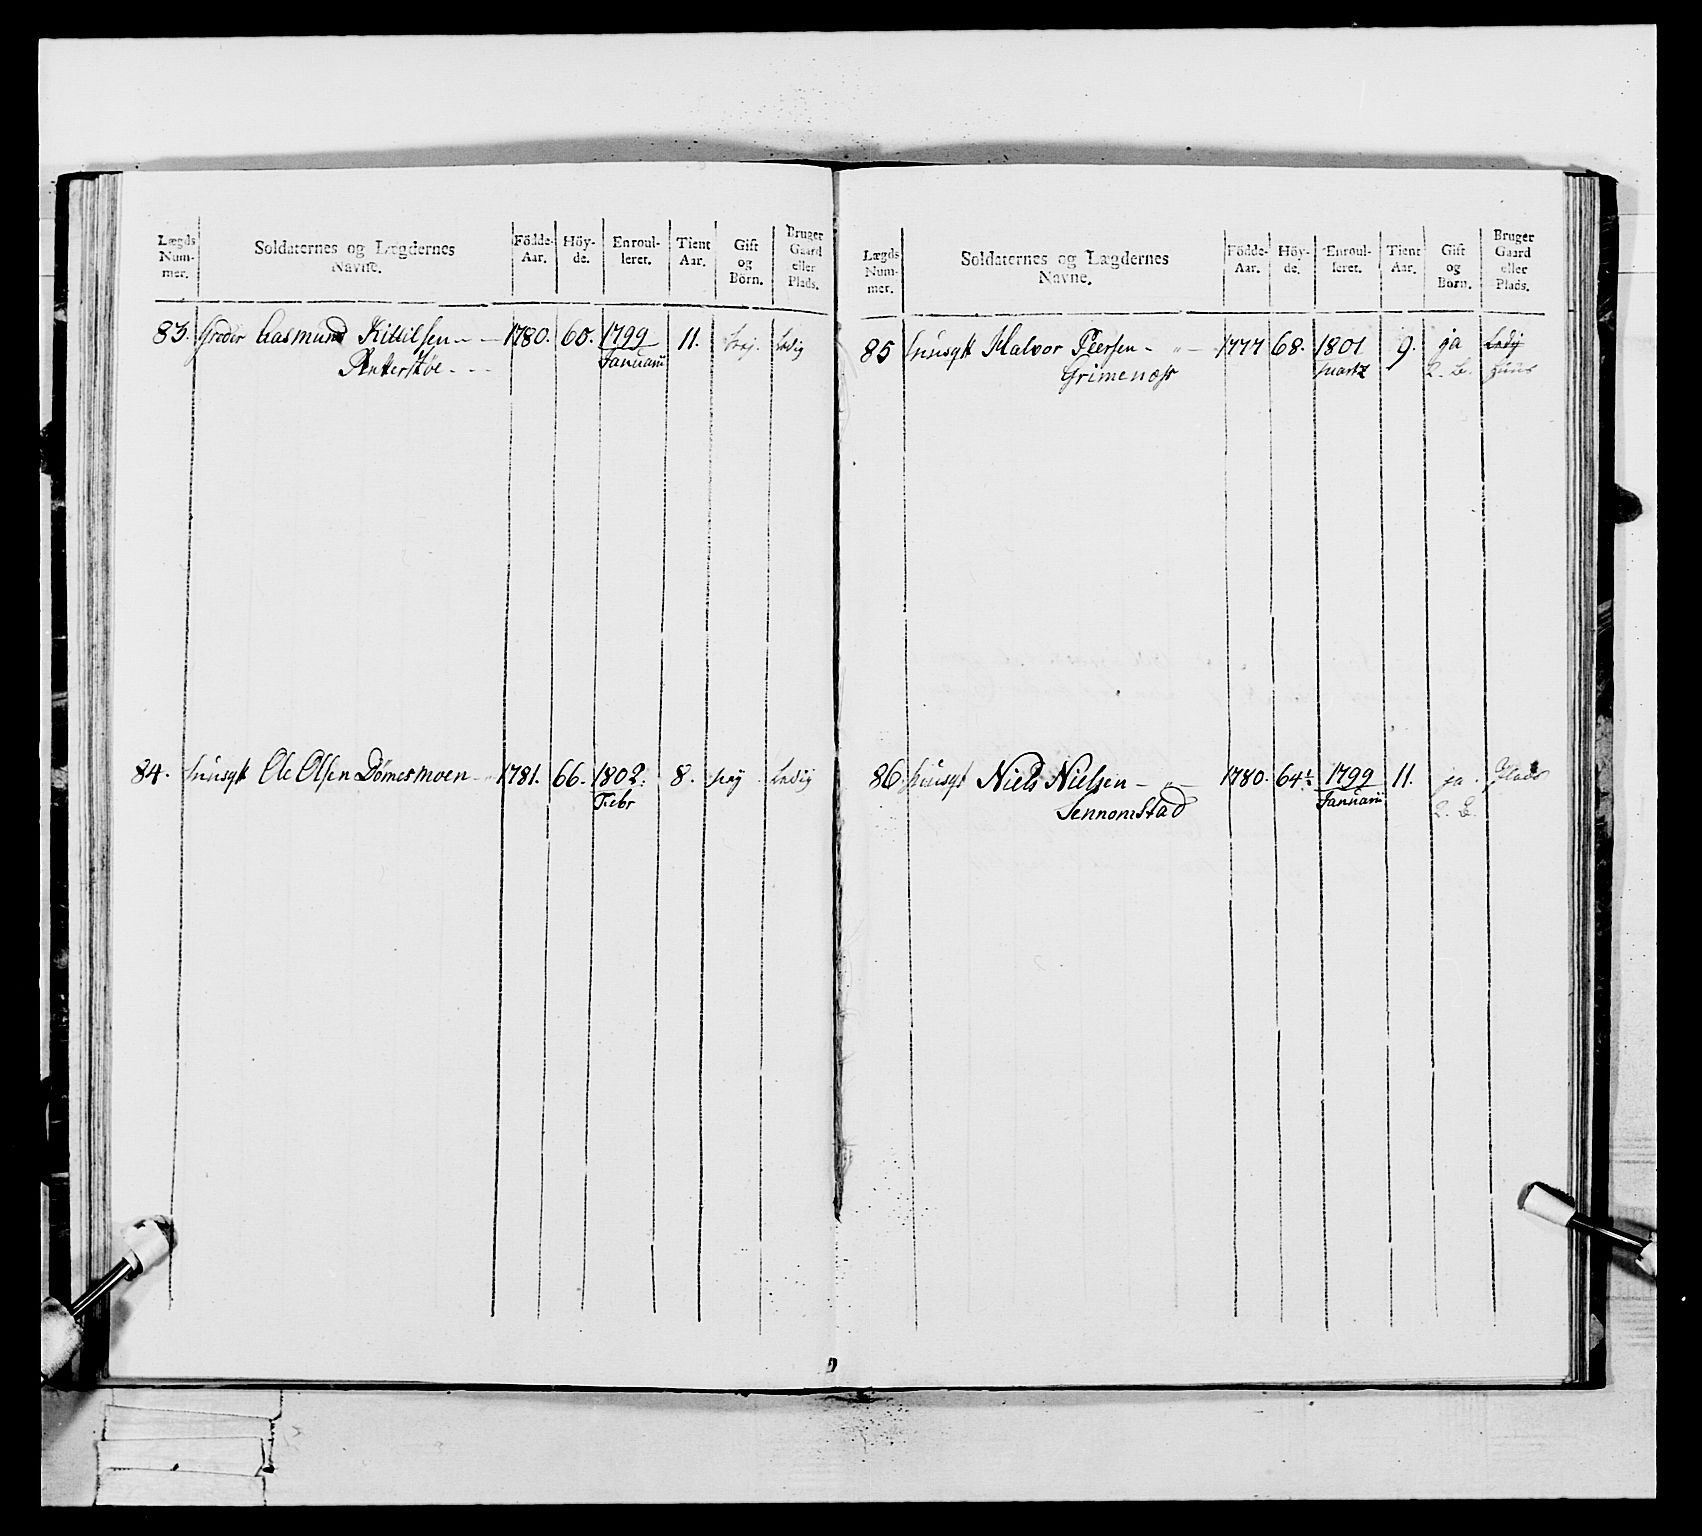 Lægds Num- mer. Soldaternes og Lægdernes Navne. Födde- Aar. Höy- de. Enroul- leret. Tient Aar. Gift og Börn. Bruger Gaard eller Plads.
83. Aasmund Kittilsen 1780. 60. 1799 11. Ledig
Januarii
84. Ole Olsen Dömesmoen 1781. 66. 1802. 8. Ney Ledig
Febr
Lægds Num- mer. Soldaternes og Lægdernes Navne. Födde- Aar. Höy- de. Enroul- leret. Tient Aar. Gift og Börn. Bruger Gaard eller Plads.
85 Halvor Peersen 1777 68. 1801 9. ja Ledig
Grimenæss Martz 2. B. Huus
86 Niels Nielsen 1780. 64½ 1799 11. ja. Plads
Sennomstad Januarii 2. B.